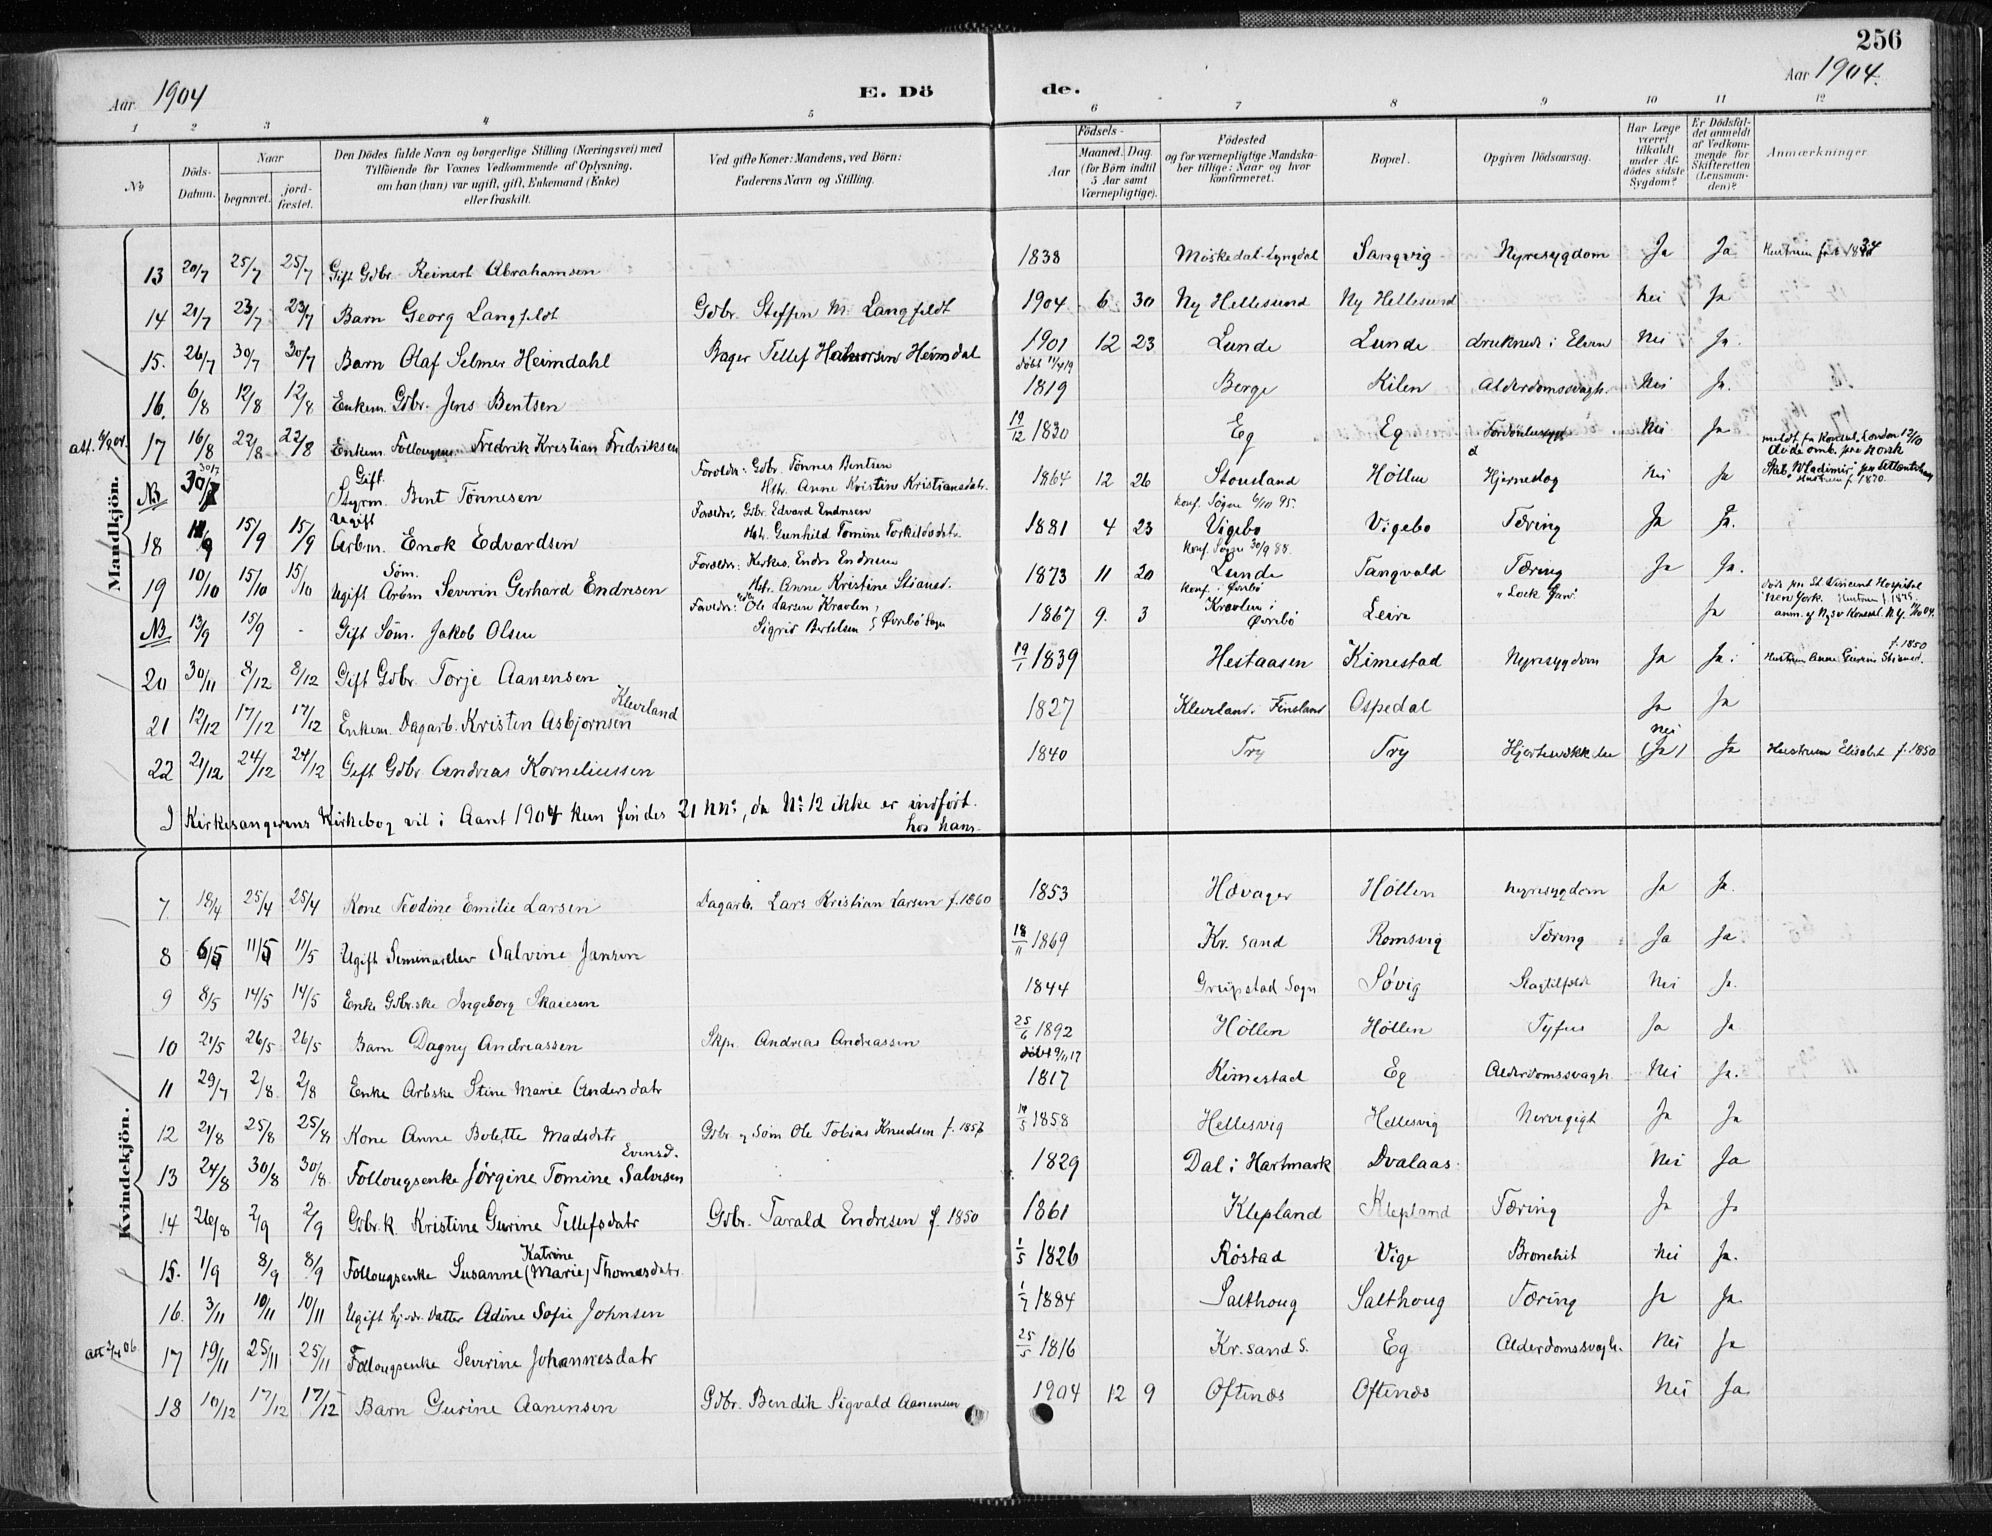 256
Aar 1904
E. Dö de.
Aar 1904.
1 2 3 4 5 6 7 8 9 10 11 12
№
Döds-Datum.
Naar
begravet.
jord-fæstet.
Den Dödes fulde Navn og borgerlige Stilling (Næringsvei) med
Tilföiende for Voxnes Vedkommende af Oplysning,
om han (hun) var ugift, gift, Enkemand (Enke)
eller fraskilt.
Ved gifte Koner: Mandens, ved Börn:
Faderens Navn og Stilling.
Födsels-
Aar
Maaned. Dag.
(for Börn indtil
5 Aar samt
Værnepligtige).
Födested
og for værnepligtige Mandska-
ber tillige: Naar og hvor
konfirmeret.
Bopæl.
Opgiven Dödsaarsag.
Har Læge
været
tilkaldt
under Af-
dödes sidste
Sygdom?
Er Dödsfal-
det anmeldt
af Vedkom-
mende for
Skifteretten
(Lensman-
den)?
Anmærkninger
Mandkjön.
13 20/7 25/7 25/7 Gift Gdbr. Reinert Abrahamsen 1838 Møskedal-Lyngdal Sangvig Nyresygdom Ja Ja Hustruen født 1834
14 21/7 23/7 23/7 Barn Georg Langfeldt Gdbr. Steffen M. Langfeldt 1904 6 30 Ny Hellesund Ny Hellesund Nei Ja
15. 26/7 30/7 30/7 Barn Olaf Selmer Heimdahl Bager Tellef Heimdal 1901 12 23 Lunde Lunde druknede i Elven Nei Ja.
16. 6/8 12/8 12/8 Enkem. Gdbr. Jens Bentsen døbt 11/4 19 1819 Berge Kilen Alderdomssvagh. Nei Ja.
17 16/8 22/8 22/8 Enkem. Follougsm. Fredrik Kristian Fredriksen 19/12 1830 Eg Eg Nei Ja
NB 30/7 Gift Styrm. Bent Tönnesen Foreldr: Gdbr. Tönnes Bentsen
Hst. Anne Kristine Kristiansdatr. 1864 12 26 Stousland Höllen Hjerneslag Nei Ja
meldt fra Konsul. London 12/10
døde omb. paa norsk
Skib Wladimir,
Hustruen f. 1870.
konf. Søgne 6/10 95.
18 15/9 15/9 Ugift Arbm. Enok Edvardsen Foreldr. Gdbr. Edvard Endresen
Hst. Gunhild Tomine Torkelsdatr. 1881 4 23 Vigebo Vigebo Tæring Ja Ja.
konf. Søgne 30/9 88.
19 10/10 15/10 15/10 Ugift Søm. Arbm Severin Gerhard Endresen Foreldr: Kirkes. Endre Endresen
Hst. Anne Kristine Stiansd. 1873 11 20 Lunde Tangvald Tæring Ja Ja.
konf. i Øvrebö
NB 13/9 15/9 - Gift Söm. Jakob Olsen Foreldr: Ole Larsen Kravlen,
Sigrid Bertelsen Øvrebö Sogn 1867 9. 3 Kravlen i Øvrebö Leire "Lock Jaw" Ja
døde paa St. Vincent Hospital
New York. Hustruen f. 1875.
20 30/11 8/12 8/12 Gift Gdbr. Torje Aanensen 19/1 1839 Hestaasen Kimestad Nyresygdom Ja Ja. f. 1850
Hustruen Anne Gurine Stiansd.
21 12/12 17/12 17/12 Enkem. Dagarb. Kristen Asbjornsen Kleveland 1827 Kleveland. Finsland Ospedal Ja Ja
22 21/12 24/12 24/12 Gift Gdbr Andreas Korneliussen 1840 Try Try nei (Ja) Ja Hustruen Elisabet f. 1850
I Kirkesangerens Kirkebog vil i Aaret 1904 kun findes 21 nn:, da No. 12 ikke er indført
hos ham.
Kvindekjön.
7. 18/4 25/4 25/4 Kone Teodine Emilie Larsen Dagarb. Lars Kristian Larsen f. 1860 1853 Høvager Höllen Nyresygdom Ja Ja.
8 6/5 11/5 11/5 Ugift Seminarelev Salvine Jansen 18/11 1869 Kr. sand Romsvig Tæring Ja Ja.
9 8/5 14/5 14/5 Enke Gdbr.ske Ingeborg Skaiesen 1844 Greipstad Sogn Søvig Slagtilfælde Nei Ja.
10 21/5 26/5 26/5 Barn Dagny Andreassen Skpr. Andreas Andreassen 25/6 1892 Höllen Höllen Tyfus Ja Ja
11 29/7 2/8 2/8 Enke Arbske Stine Marie Andersdatr 1817 Kimestad Eg Alderdomssvagh. Nei Ja.
12 21/8 25/8 25/8 Kone Anne Bolette Madsdatr Gdbr og Søm Ole Tobias Knudsen f. 1857 19/5 1858 Hellesvig Hellesvig Nervegigt Ja Ja
13 24/8 30/8 30/8 Follougsenke Jørgine Tomine Salvesen Evensd. 1829 Dal i Hartmark Dvalaas. Nei Ja
14 26/8 2/9 2/9 Gdbr.k Kristine Gurine Tellefsdatr Gdbr. Tarald Endresen f. 1850 1861 Klepland Klepland Tæring Ja Ja
15. 1/9 8/9 8/9 Follougsenke Susanne (Marie) Katrine Thomasdatr. 1/5 1826 Röstad Vige Bronchit Nei Ja.
16. 3/11 10/11 10/11 Ugift hj.v. Datter Adine Sofie Johnsen 1/7 1884 Salthoug Salthoug Tæring Ja Ja.
17 19/11 25/11 25/11 Follougsenke Severine Johannesdatr 25/5 1816 Kr. sand S. Eg Alderdomssvagh. Nei Ja
18 10/12 17/12 17/12 Barn Gurine Aanensen Gdbr. Bendik Sigvald Aanensen 1904 12 9 Oftenæs Oftenæs Nei Ja